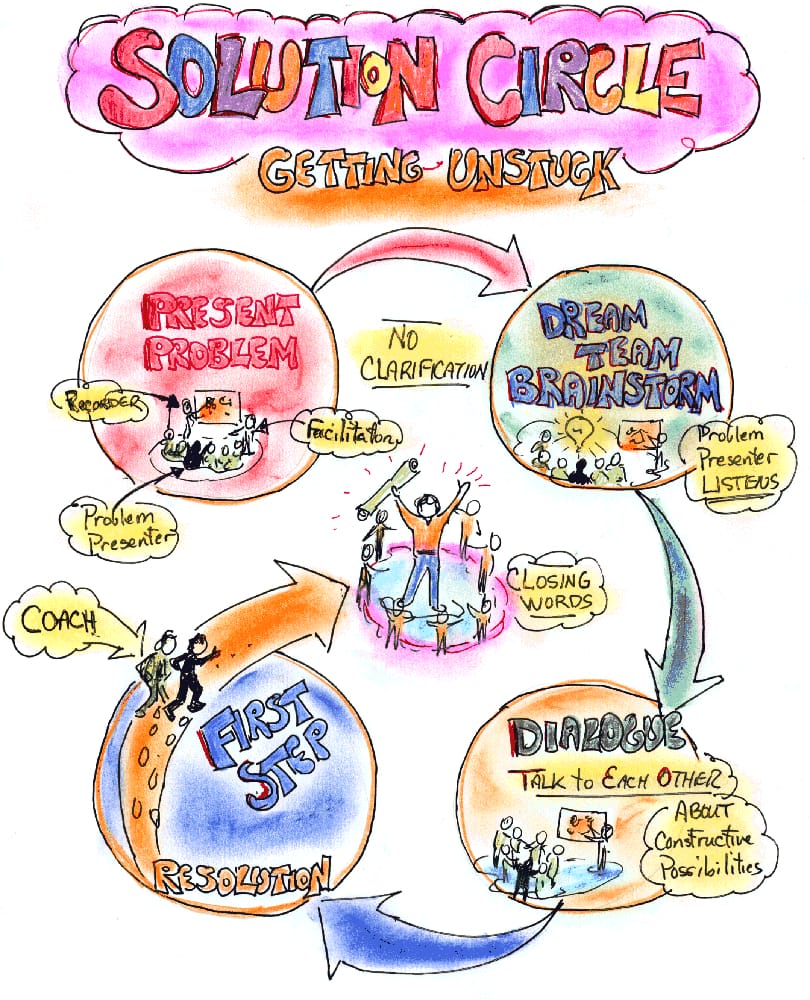 SOLUTION CIRCLE
GETTING UNSTUCK
PRESENT
PROBLEM
RECORDER
Facilitator
Problem
Presenter
NO
CLARIFICATION
DREAM
TEAM
BRAINSTORM
Problem
Presenter
LISTENS
DIALOGUE
TALK to EACH OTHER
ABOUT
Constructive
Possibilities
FIRST
STEP
RESOLUTION
COACH
CLOSING
WORDS